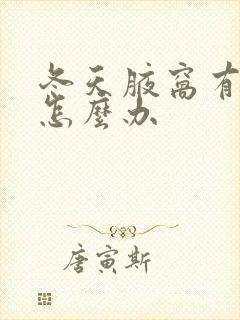 冬天腋窝有
怎麼办
唐寅斯